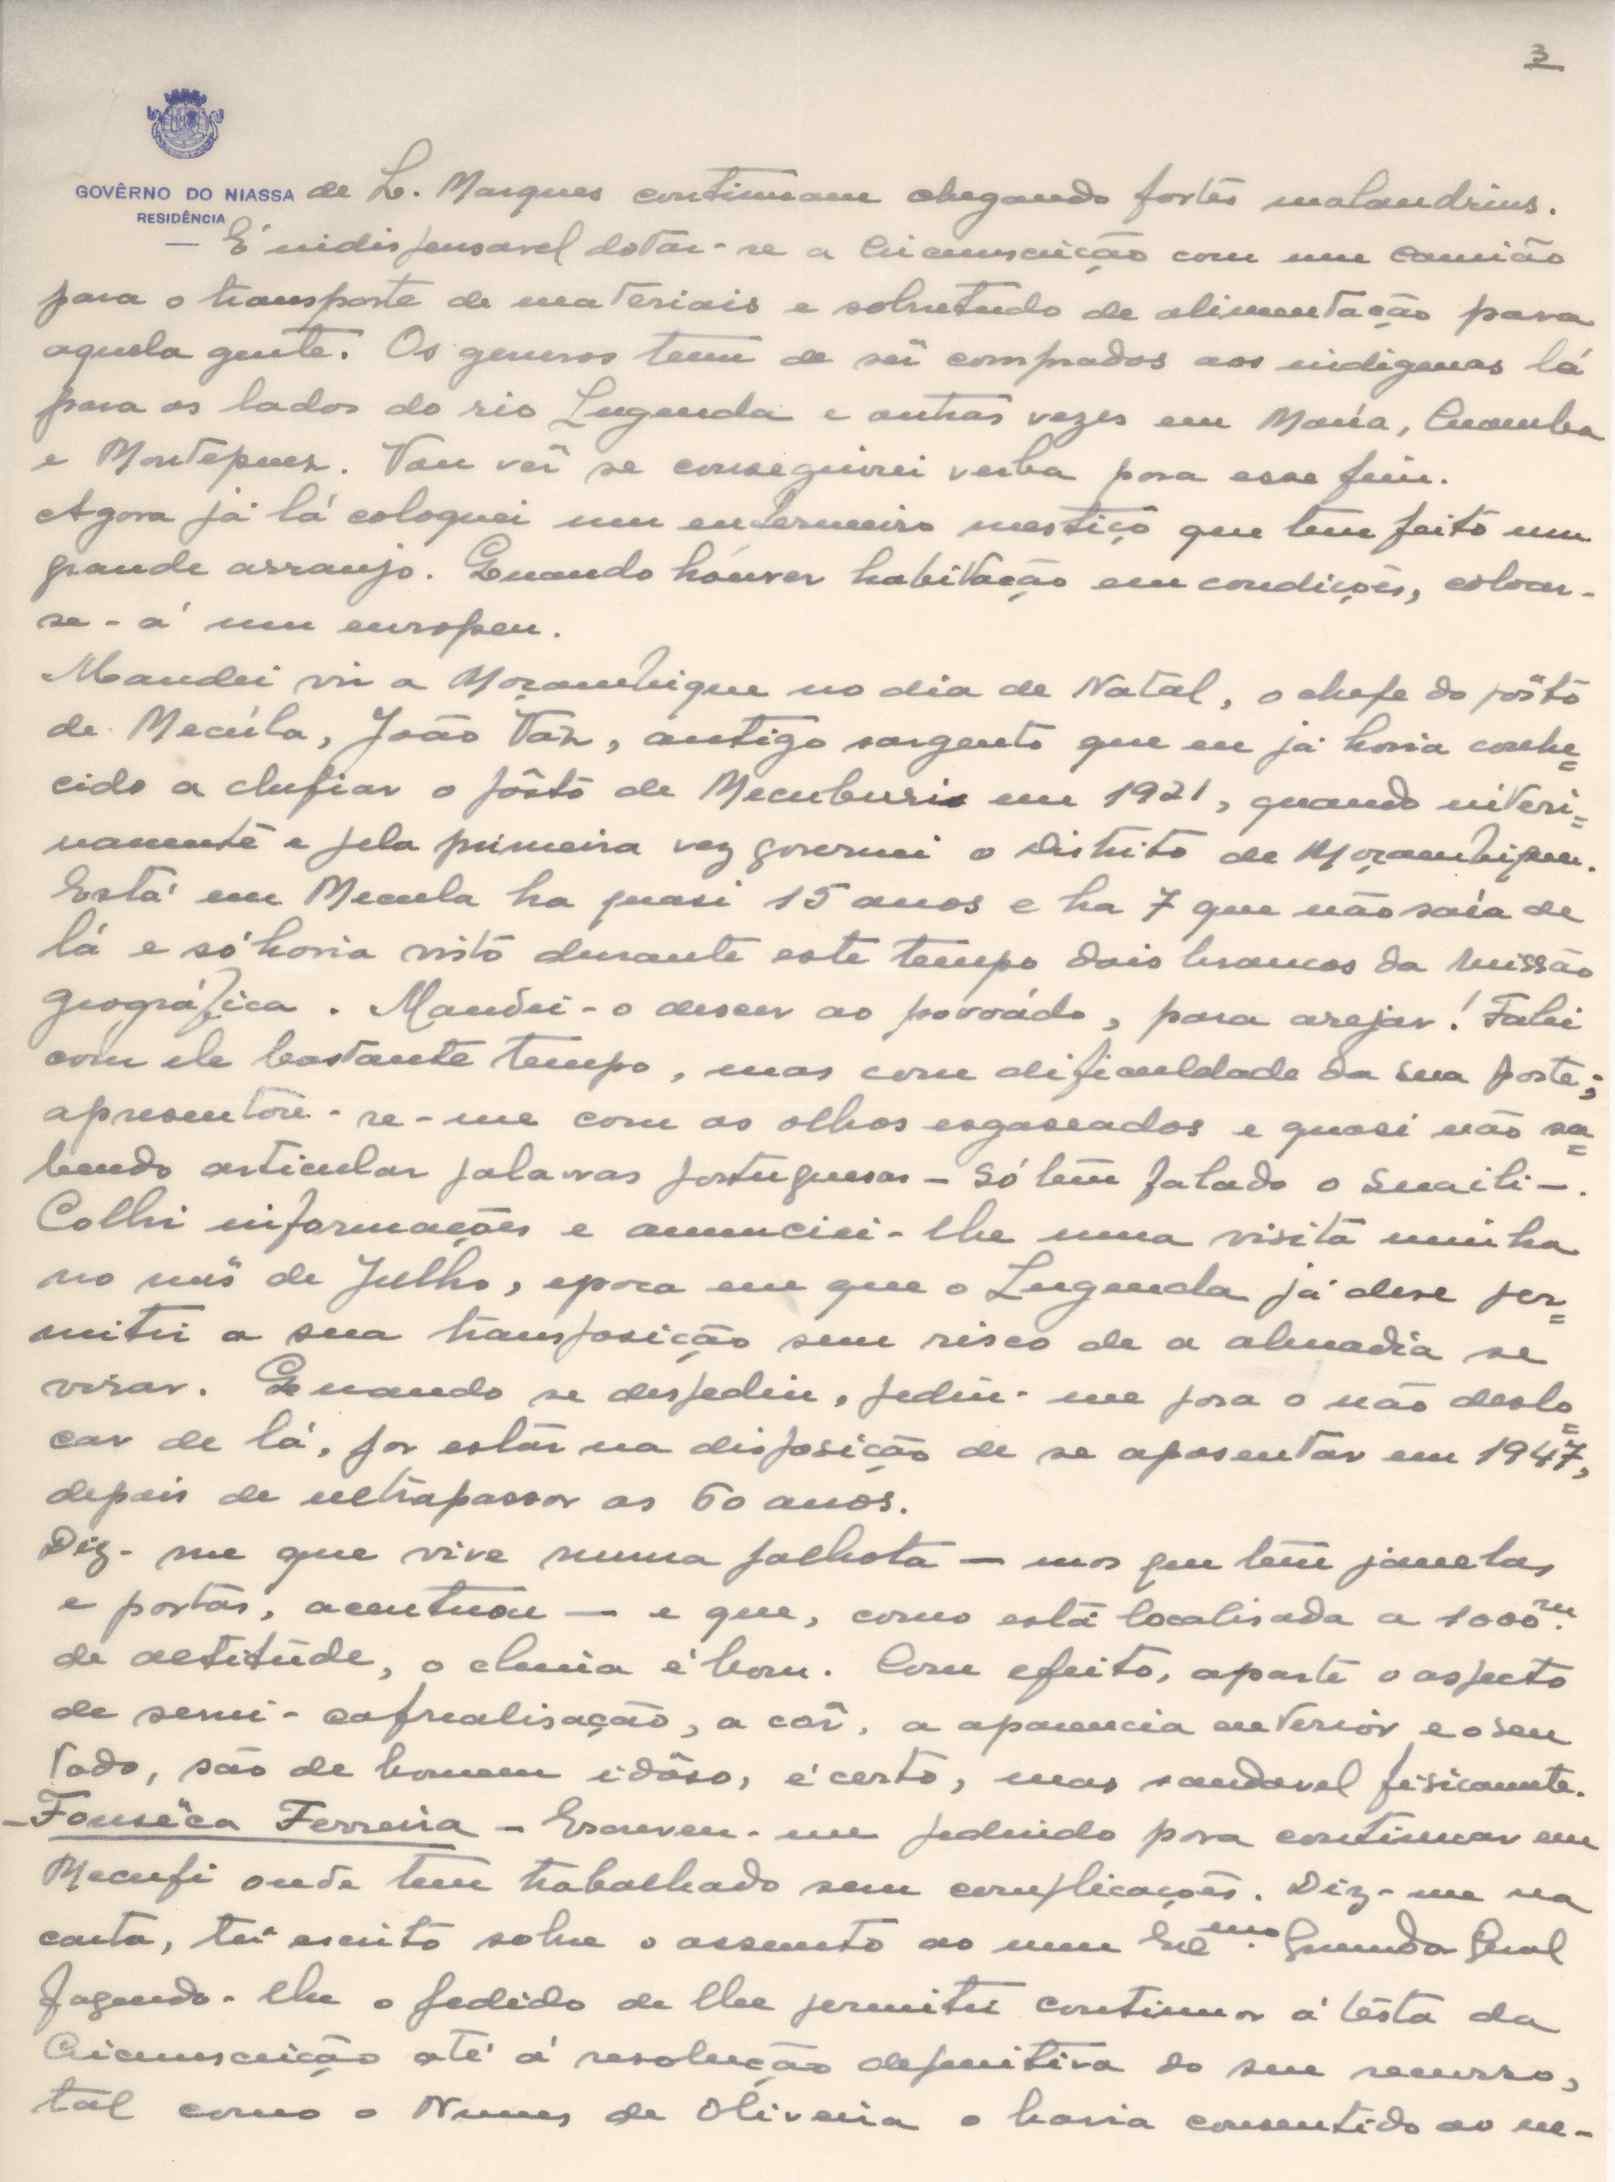 3
GOVÊRNO DO NIASSA
RESIDÊNCIA
de L. Marques continuam chegando fortes malandrins.
— É indispensavel dotar-se a Circunscrição com um camião
para o transporte de materiais e sobretudo de alimentação para
aquela gente. Os generos tem de ser comprados aos indigenas lá
para os lados do rio Lugenda e outras vezes em Maúa, Cuamba
e Montepuez. Vou vêr se conseguirei verba para esse fim.
Agora já lá coloquei um enfermeiro mestiço que tem feito um
grande arranjo. Quando houver habitação em condições, colocar-
se-á um europeu.
Mandei vir a Moçambique no dia de Natal, o chefe do pôsto
de Mecúla, João Vaz, antigo sargento que eu já havia conhe=
cido a chefiar o pôsto de Mecuburi em 1921, quando interi=
namente e pela primeira vez governei o distrito de Moçambique.
Está em Mecula ha quasi 15 anos e ha 7 que não saía de
lá e só havia visto durante este tempo dois brancos da Missão
Geográfica. Mandei-o descer ao povoádo, para arejar! Falei
com ele bastante tempo, mas com dificuldade da sua parte;
apresentou-se-me com os olhos esgaseados e quasi não sa=
bendo articular palavras portuguesas – só tem falado o Suaili –.
Colhi informações e anunciei-lhe uma visita minha
no mês de Julho, epoca em que o Lugenda já deve per=
mitir a sua transposição sem risco de a almadia se
virar. Quando se despediu, pediu-me para o não deslo=
car de lá, por estar na disposição de se aposentar em 1947,
depois de ultrapassar os 60 anos.
Diz-me que vive numa palhota — mas que tem janelas
e portas, acentuou — e que, como está localisada a 1000m.
de altitude, o clima é bom. Com efeito, aparte o aspecto
de semi-cafrealisação, a côr, a aparencia exterior e o seu
todo, são de homem idôso, é certo, mas saudavel fisicamente.
– Fonsêca Ferreira – Escreveu-me pedindo para continuar em
Mecufi onde tem trabalhado sem complicações. Diz-me na
carta, ter escrito sobre o assunto ao Exmo.
fazendo-lhe o pedido de lhe permitir continuar á testa da
Circunscrição até á resolução definitiva do seu recurso,
tal como o Nunes de Oliveira o havia consentido ao me-